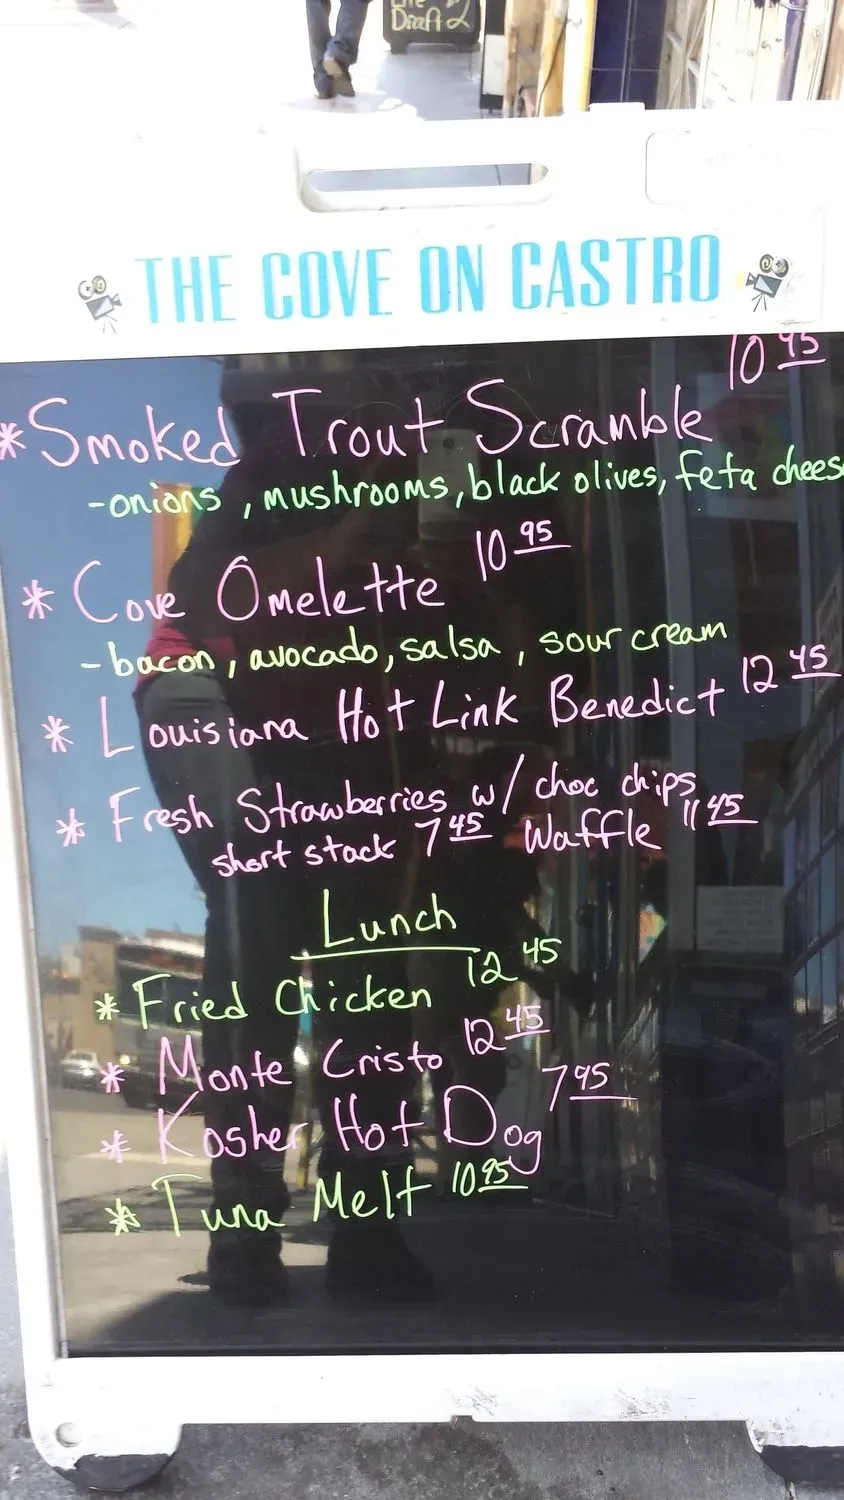 Draft
THE COVE ON CASTRO
10 95
* Smoked Trout Scramble
- onions, mushrooms, black olives, feta chees
* Cove Omelette 10 95
- bacon, avocado, salsa, sour cream
* Louisiana Hot Link Benedict 12 45
* Fresh Strawberries w/ choc chips
short stack 7 45 Waffle 11 45
Lunch
* Fried Chicken 12 45
* Monte Cristo 12 45
* Kosher Hot Dog 7 95
* Tuna Melt 10 95